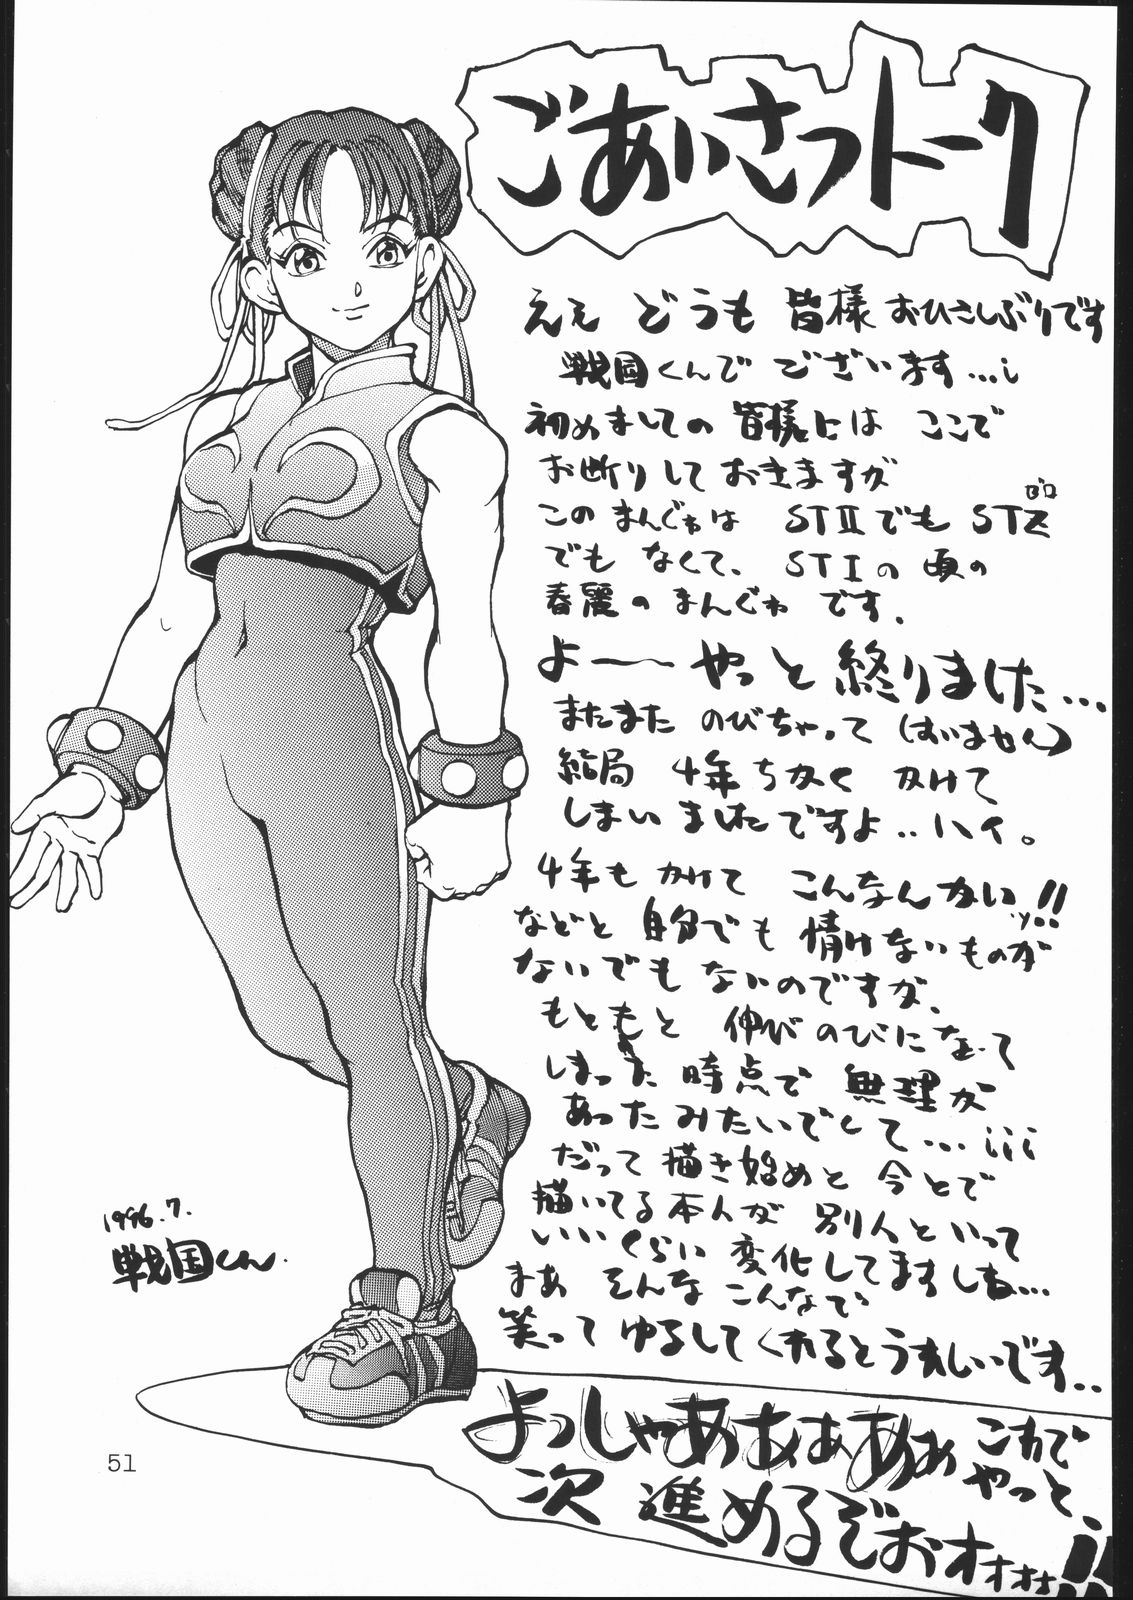 ごあいさつトーク
ええ どうも 皆様 おひさしぶりです
戦国くんで ございます…
初めましての 皆様には ここで
お断りして おきますが
このまんがは STⅡでも STZ
ゼロ
でも なくて、STⅠの 頃の
春麗の まんがです.
よーーやっと 終りました…
またまた のびちゃって (すいません)
結局 4年ちかく かけて
しまいましたですよ‥ハイ。
4年も かけて こんなんかいッ!!
などと 自分でも 情けないものが
ないでもないのですが、
もともと 伸びのびになって
しまった 時点で 無理が
あったみたいでして…
だって 描き始めと 今とで
描いてる本人が 別人といって
いいくらい 変化してますしね…
まあ そんな こんなで
笑って ゆるしてくれるとうれしいです‥
よっしゃああぁああ これで
やっと、
次 進めるぞおオォォォ!!
1996.7.
戦国くん.
51